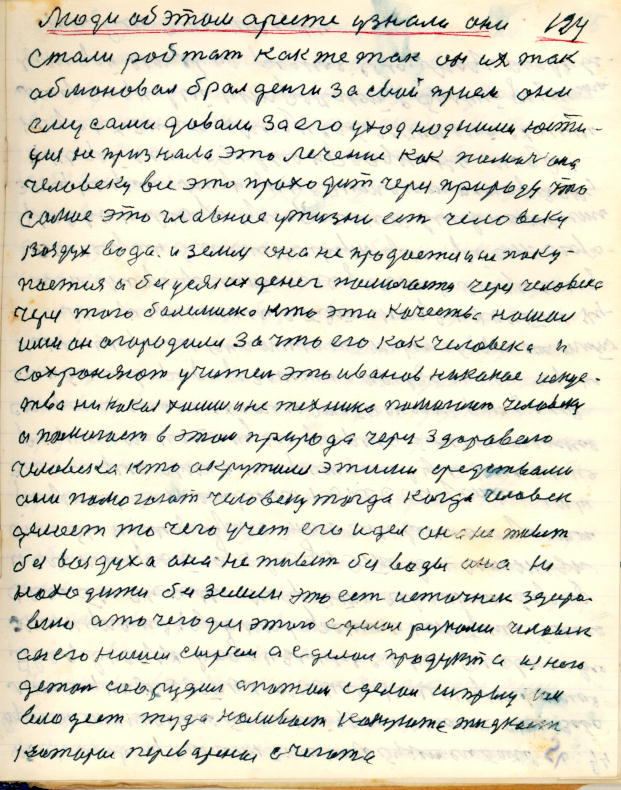 Люди об этом аресте узнали они 124
стали роптат как же так он их так
обмоновал брал денги за свой прием они
ему сами довали за его уход но дними юсти-
ция не признала это лечение как помоч она
человеку все это проходит через природу что
самое это главное у жизни ест человеку
воздух вода. и земля она не продается и не поку-
пается а без усяких денег помогает через человека
через того болемиско кто эти качества нашол
ими он огородили за что его как человека и
сохроняют учител это иванов никакое искус-
тва ни какая химия не техника помогают человеку
а помогает в этом природа через здоровего
человека кто окружили этими средствами
они помогогат человеку тогда когда человек
делоет то чего учет его идея она не живет
без воздуха она не живет без воды она ни
находитжи без земли это ест источнек здоро-
вию а то чего для этого сделол рукоми человек
он его нашел сырьем а сделол продукт а из него
детал соорудил а потом сделол шприц он
туда наливает жидкост
которое переварена с чегото